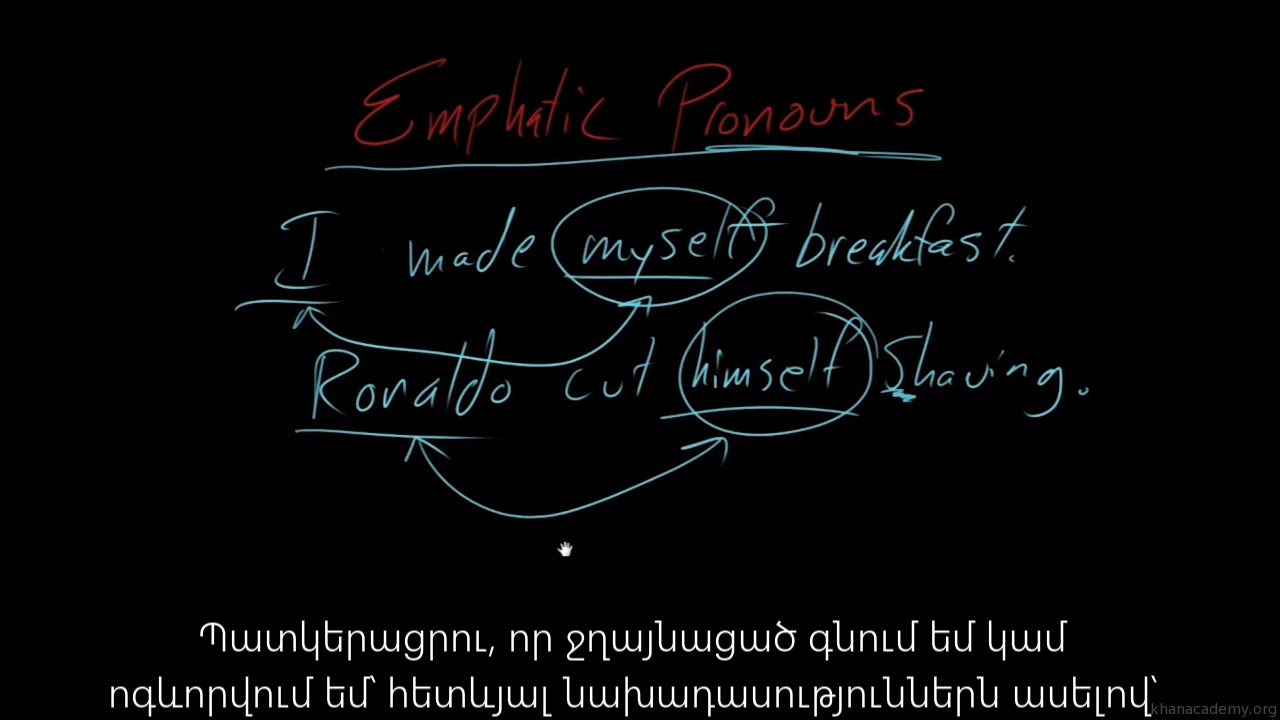 Emphatic Pronouns
I made myself breakfast.
Ronaldo cut himself Shaving.
Պատկերացրու, որ ջղայնացած գնում եմ կամ
ոգևորվում եմ՝ հետևյալ նախադասություններն ասելով՝
khanacademy.org